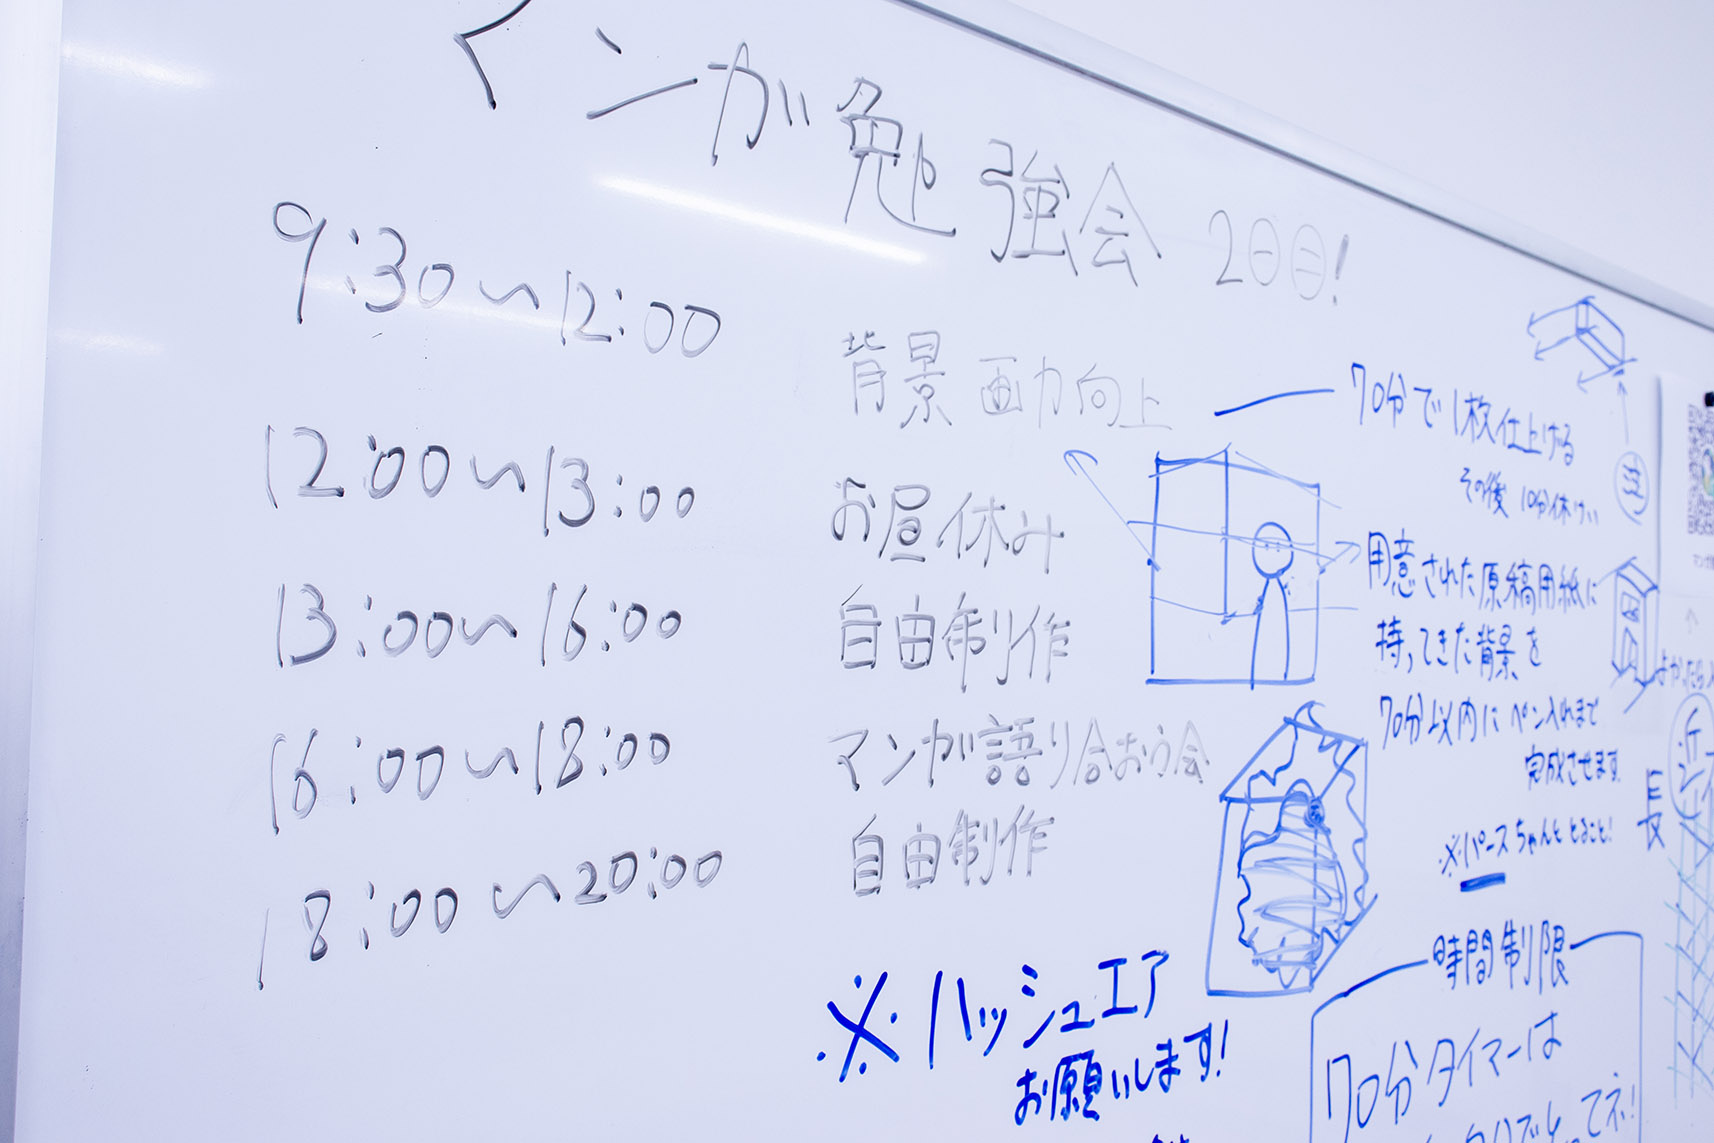 マンガ勉強会 2日目!
9:30〜12:00 背景画力向上
12:00〜13:00 お昼休み
13:00〜16:00 自由制作
16:00〜18:00 マンガ語り合おう会
18:00〜20:00 自由制作
※ハッシュエア
お願いします!
70分で1枚仕上げる
その後 10分休けい
用意された原稿用紙に
持ってきた背景を
70分以内にペン入れまで
完成させます
※パースちゃんととること!
時間制限
70分タイマーは
よかったら
近
長